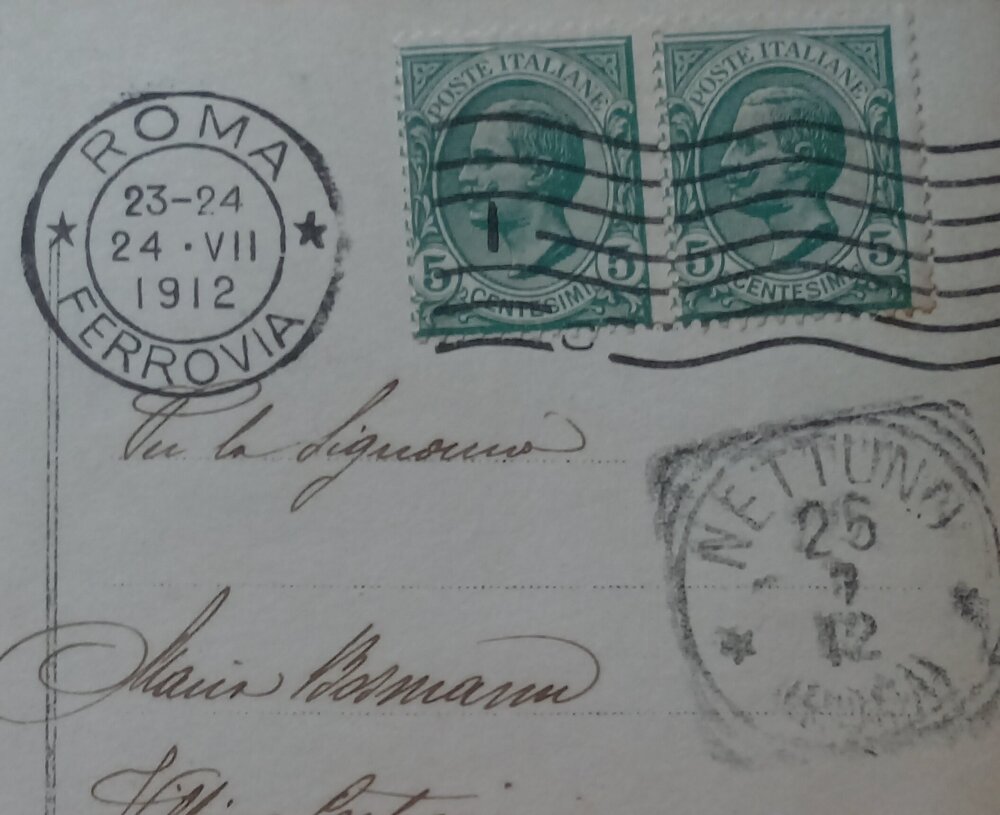 ROMA
23-24
24 · VII
1912
FERROVIA
POSTE ITALIANE
5 5
CENTESIMI
POSTE ITALIANE
5 5
CENTESIMI
NETTUNO
25
7
12
(ROMA)
Maria Bosmann